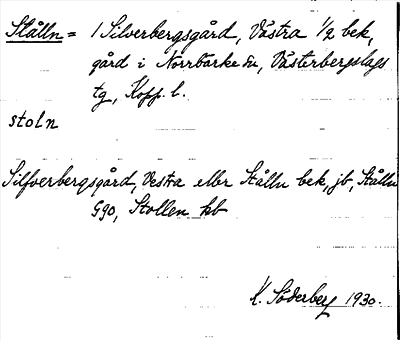 Stålln = / Silverbergsgård, Västra 1/2 bek,
gård i Norrbärke sn, Västerbergslags
tg, Kopp. l.
stoln
Silfverbergsgård, Vestra eller Stålln bek, jb, Stålln
G90, Stollen kb
K. Söderberg 1930.